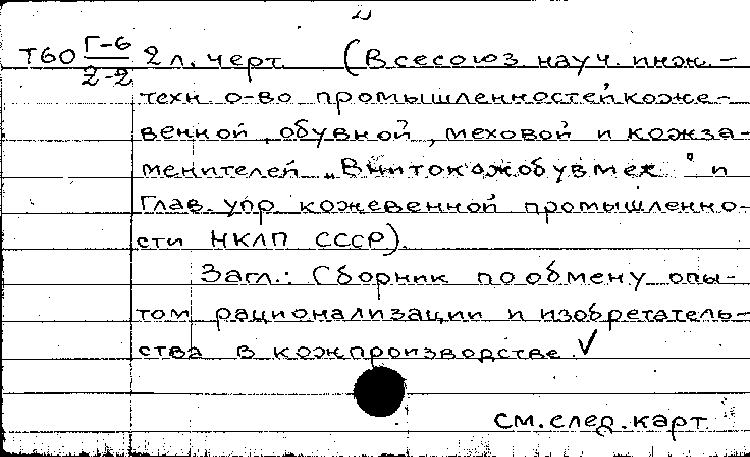 2
Т60 Г-6/2-2 2 л. черт. (Всесоюз. науч. инж.-
техн. о-во промышленностей коже-
венной, обувной, меховой и кожза-
менителей „Внитокожобувмех" и
Глав. упр. кожевенной промышленно-
сти НКЛП СССР).
Загл.: Сборник по обмену опы-
том рационализации и изобретатель-
ства в кожпроизводстве. √
см. след. карт